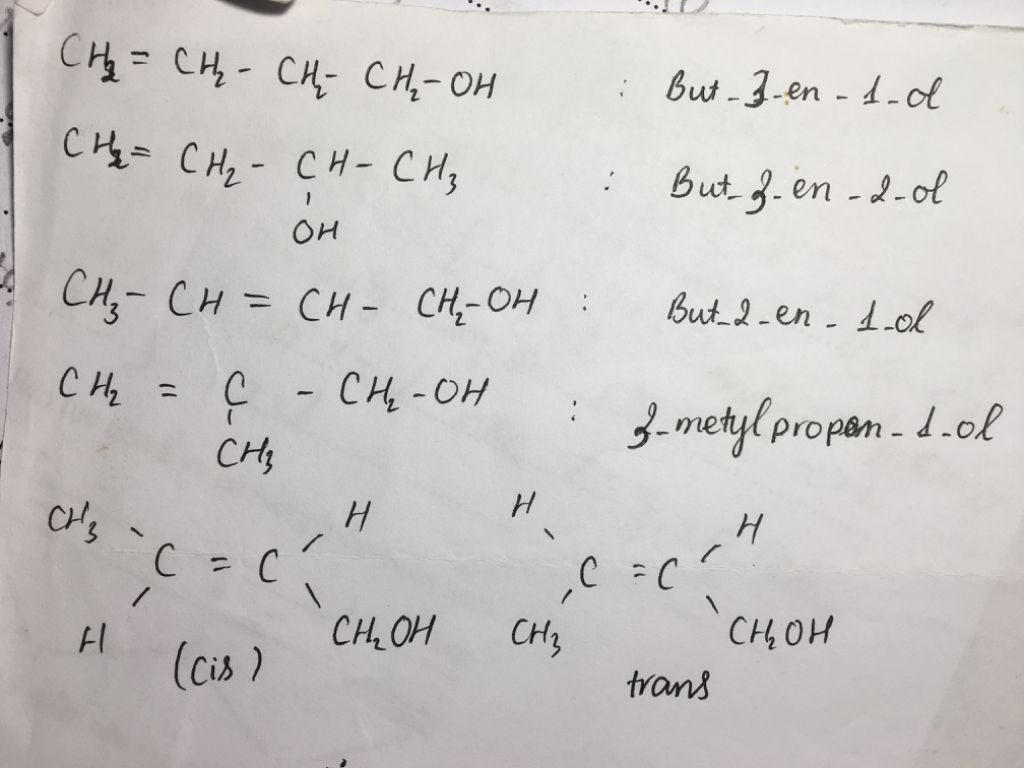 CH2 = CH2 - CH2 - CH2 - OH : But-3-en-1-ol
CH2 = CH2 - CH - CH3 : But-3-en-2-ol
OH
CH3 - CH = CH - CH2 - OH : But-2-en-1-ol
CH2 = C - CH2 - OH : 3-metylpropen-1-ol
CH3
CH3 H H H
C = C C = C
H CH2OH CH3 CH2OH
(cis) trans